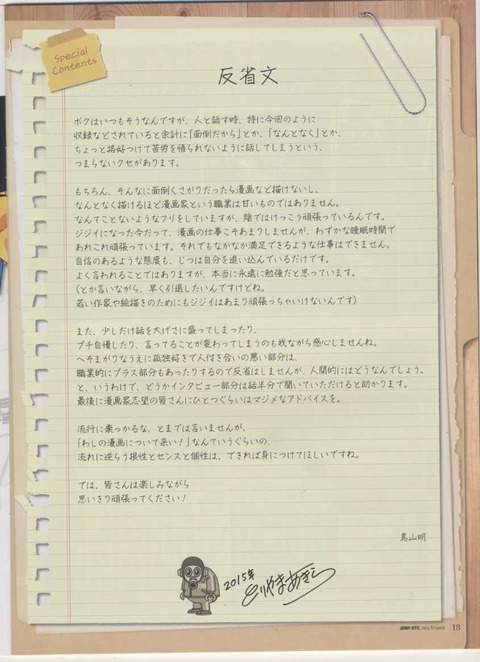 Special
Contents
反省文
ボクはいつもそうなんですが、人と話す時、特に今回のように
収録などされていると余計に「面倒だから」とか、「なんとなく」とか、
ちょっと格好つけて苦労を悟られないように話してしまうという、
つまらないクセがあります。
もちろん、そんなに面倒くさがりだったら漫画など描けないし、
なんとなく描けるほど漫画家という職業は甘いものではありません。
なんてことないようなフリをしていますが、陰ではけっこう頑張っているんです。
ジジイになった今だって、漫画の仕事こそあまりしませんが、わずかな睡眠時間で
あれこれ頑張っています。それでもなかなか満足できるような仕事はできません。
自信のあるような態度も、じつは自分を追い込んでいるだけです。
よく言われることではありますが、本当に永遠に勉強だと思っています。
(とか言いながら、早く引退したいんですけどね。
若い作家や絵描きのためにもジジイはあまり頑張っちゃいけないんです)
また、少しだけ話を大げさに盛ってしまったり、
プチ自慢したり、言ってることが変わってしまうのも我ながら感心しませんね。
へそまがりなうえに孤独好きで人付き合いの悪い部分は、
職業的にプラス部分もあったりするので反省はしませんが、人間的にはどうなんでしょう。
と、いうわけで、どうかインタビュー部分は話半分で聞いていただけると助かります。
最後に漫画家志望の皆さんにひとつぐらいはマジメなアドバイスを。
流行に乗っかるな、とまでは言いませんが、
「わしの漫画について来い!」なんていうぐらいの、
流れに逆らう根性とセンスと個性は、できれば身につけてほしいですね。
では、皆さんは楽しみながら
思いきり頑張ってください!
鳥山明
2015年
とりやまあきら
JUMP RYU 18